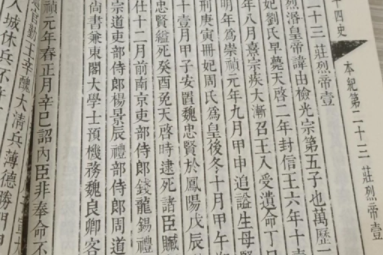 十四史 本紀第二十三 莊烈帝壹
二十三 莊烈帝壹
烈湣皇帝諱由檢光宗第五子也萬曆
妃劉氏早薨天啟二年封信王六年十
年八月熹宗疾大漸召王入受遺命丁
明年為崇禎元年九月甲申追諡生母賢
荊庚寅冊妃周氏為皇后冬十月甲午
壹月甲子安置魏忠賢於鳳陽戊辰
忠賢縊死癸酉免天啟時逮死諸臣贓
仕十二月前南京吏部侍郎錢龍錫禮
宗道吏部侍郎楊景辰禮部侍郎周道
尚書兼東閣大學士預機務魏良卿客
禎元年春正月辛巳詔內臣非奉命不
勤王辛醜大清兵薄德勝門
入城休兵不許